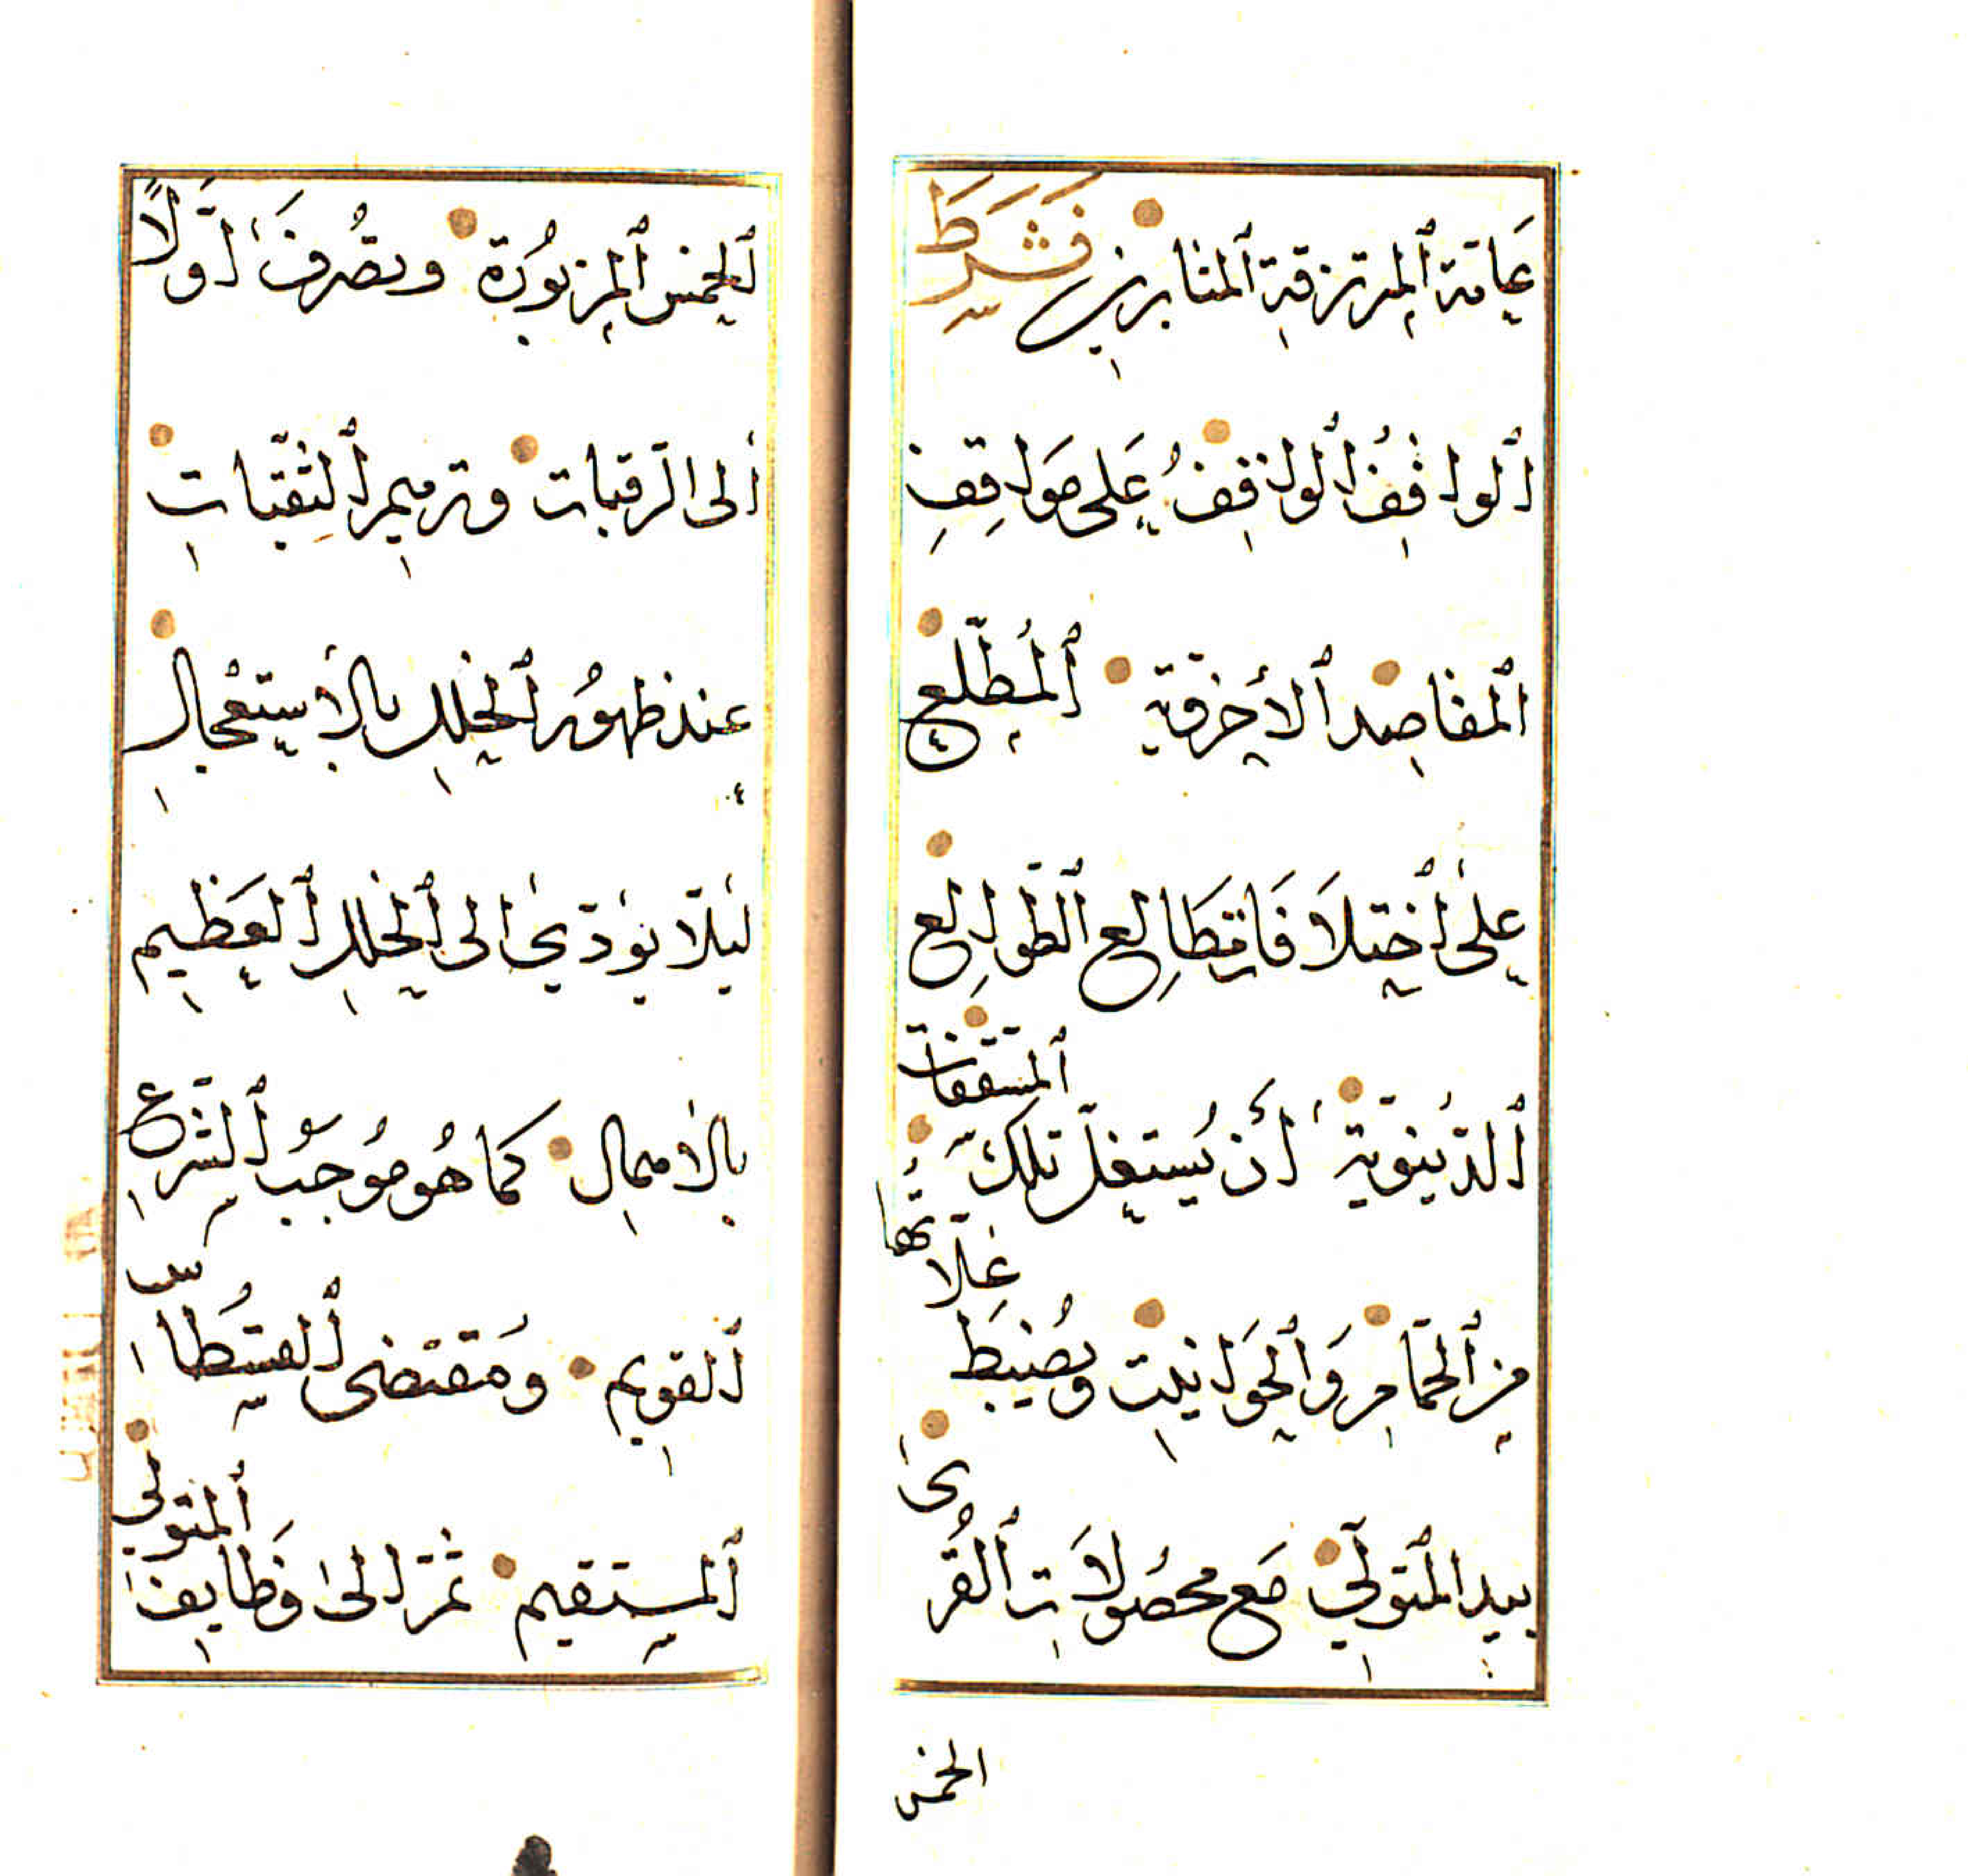 عَامّة ٱلمرتزقة ٱلمثابرين فَشَرَطَ
ٱلواقفُ ٱلواقفُ عَلى مَواقِفِ
ٱلمقاصد ٱلأُخرَوية ٱلمُطّلع
على ٱختِلاَفات مَطَالِع ٱلطّوالِع
ٱلدّنيويّة أَن يُستغلّ تلك ٱلمسقّفات
من ٱلحمّام وَٱلحَوانيت ويُضبَطَ غلاّتُها
بيد ٱلمُتولّي مَع محصُولاَت ٱلقُرىٰ
الخمس
ٱلخمس ٱلمزبُورة ويصُرفَ اوّلاً
الى الرّقبات وترميم ٱلنّقبات
عند ظهُور ٱلخلل بالأستعجالِ
ليلّا يؤدّي الى ٱلخلل ٱلعَظيم
بالامهال كما هُو مُوجَبُ ٱلشّرع
ٱلقويم ومُقتضى ٱلقسُطاس
ٱلمستقيم ثمّ الى وَظايف ٱلمتولى